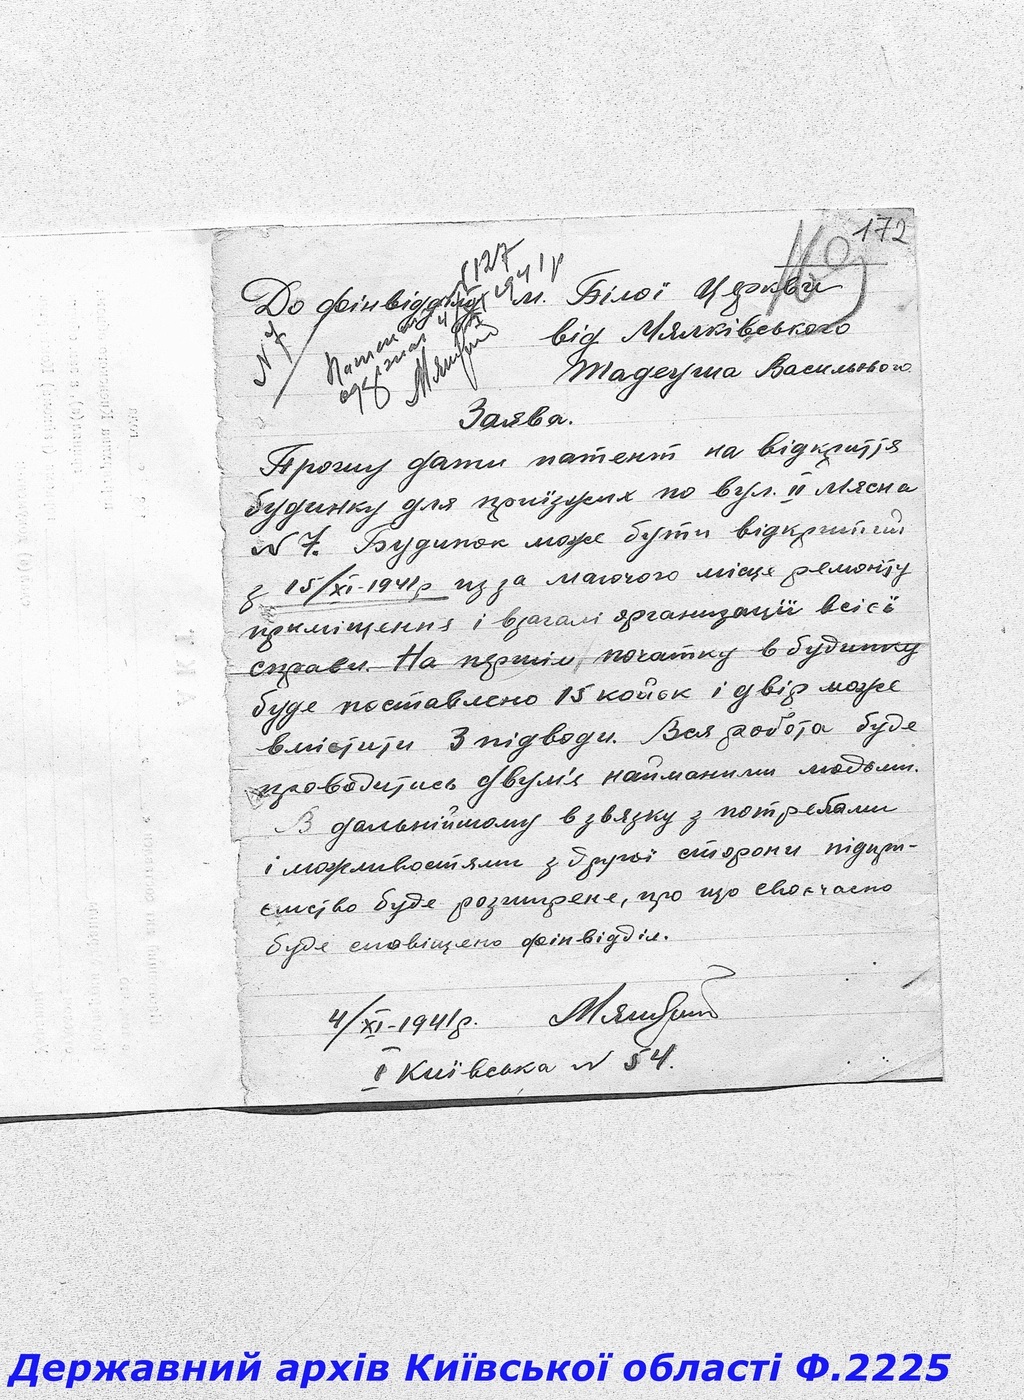 172
До фінвідділу м. Білої Церкви
від Мялківського
Тадеуша Васильного
№ 7
Патент № 127
одержав 4/XI 1941р
Заява.
Прошу дати патент на відкриття
будинку для приїзжих по вул. II Мясна
№ 7. Будинок може бути відкритий
з 15/XI-1941р из за маючого місце ремонту
приміщення і взагалі организації всієї
справи. На першім початку в будинку
буде поставлено 15 койок і двір може
вмістити 3 підводи. Вся робота буде
проводитись двумя найманими людьми.
В дальнійшому в звязку з потребами
і можливостями з другої сторони підпри-
ємство буде розширене, про що своєчасно
буде сповіщено фінвідділ.
4/XI-1941р.
I Київська № 54.
Державний архів Київської області Ф.2225